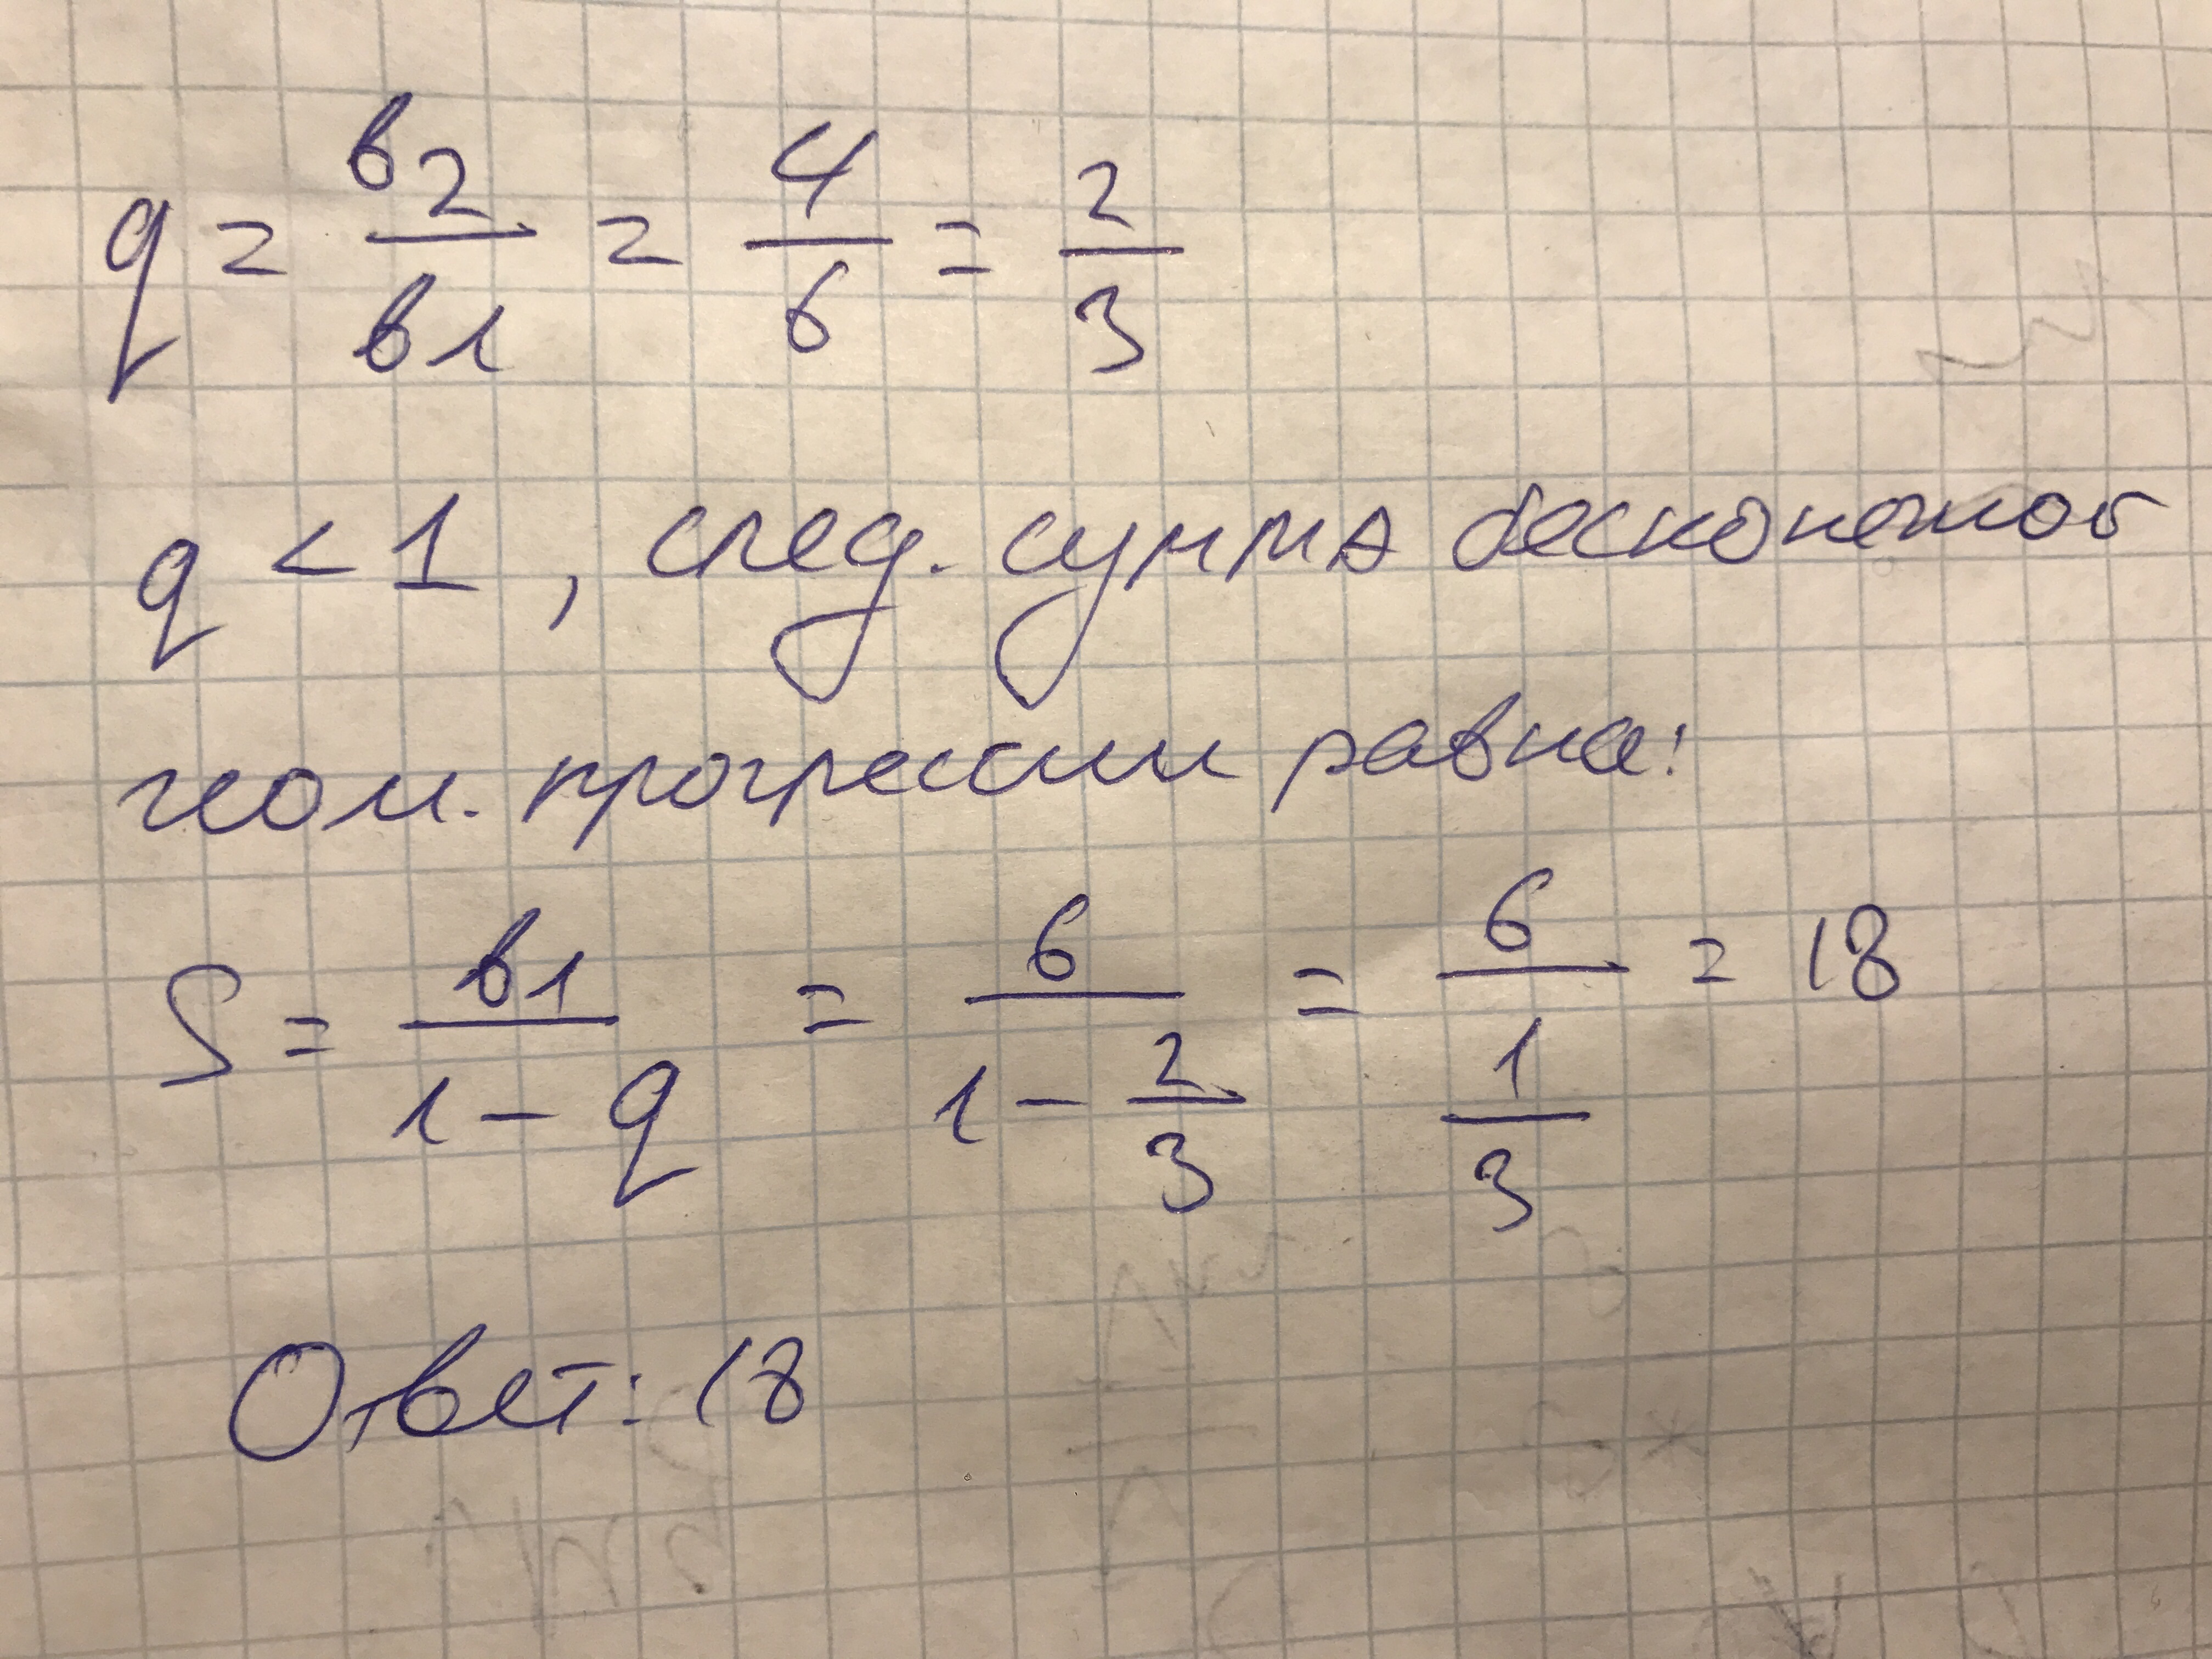 q = b2/b1 = 4/6 = 2/3
q < 1, след. сумма бесконечной
геом. прогрессии равна:
S = b1/(1 - q) = 6/(1 - 2/3) = 6/(1/3) = 18
Ответ: 18